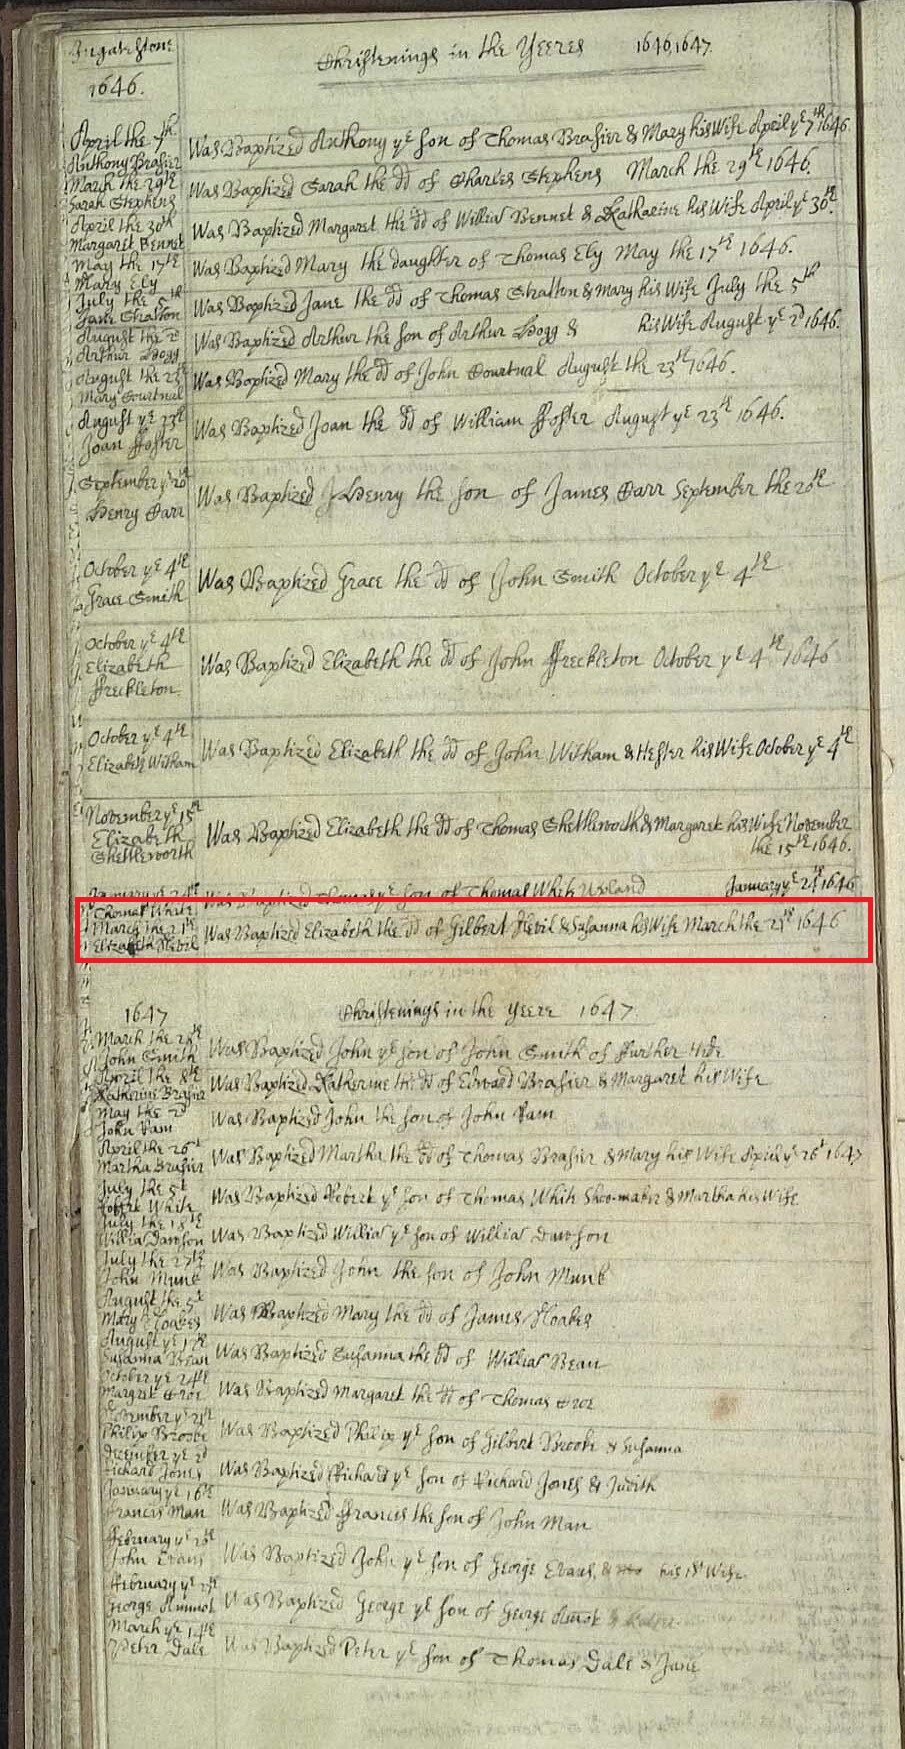 Ingatestone
1646.
Christenings in the Yeeres 1646, 1647.
April the 7th
Anthony Brasier
Was Baptized Anthony ye son of Thomas Brasier & Mary his Wife April ye 7th 1646.
March the 29th
Sarah Stephens
Was Baptized Sarah the dd of Charles Stephens March the 29th 1646.
April the 30th
Margaret Bennet
Was Baptized Margaret the dd of Willia Bennet & Katharine his Wife April ye 30th.
May the 17th
Mary Ely
Was Baptized Mary the daughter of Thomas Ely May the 17th 1646.
July the 5th
Jane Stratton
Was Baptized Jane the dd of Thomas Stratton & Mary his Wife July the 5th
August the 2d
Arthur Hogg
Was Baptized Arthur the son of Arthur Hogg & his Wife August ye 2d 1646.
August the 23th
Mary Courtnal
Was Baptized Mary the dd of John Courtnal August the 23th 1646.
August ye 23th
Joan ffoster
Was Baptized Joan the dd of William ffoster August ye 23th 1646.
September ye 20th
Henry Carr
Was Baptized Henry the son of James Carr September the 20th
October ye 4th
Grace Smith
Was Baptized Grace the dd of John Smith October ye 4th
October ye 4th
Elizabeth
ffreckleton.
Was Baptized Elizabeth the dd of John ffreckleton October ye 4th 1646
October ye 4th
Elizabeth Witham
Was Baptized Elizabeth the dd of John Witham & Hester his Wife October ye 4th
November ye 15th
Elizabeth
Shettleworth
Was Baptized Elizabeth the dd of Thomas Shettleworth & Margaret his Wife November
the 15th 1646.
January ye 24th
Thomas White
Was Baptized Thomas ye son of Thomas White January ye 24th 1646
March the 21th
Elizabeth Nevil
Was Baptized Elizabeth the dd of Gilbert Nevil & Susanna his Wife March the 21th 1646
1647
Christenings in the Yeere 1647.
March the 28th
John Smith
Was Baptized John ye son of John Smith of Further Hide
April the 8th
Katherine Brasier
Was Baptized Katherine the dd of Edward Brasier & Margaret his Wife
May the 2d
John Pam
Was Baptized John the son of John Pam
April the 26t
Martha Brasier
Was Baptized Martha the dd of Thomas Brasier & Mary his Wife April ye 26t 1647
July the 5t
Robert White
Was Baptized Robert ye son of Thomas White Shoomaker & Martha his Wife
July the 18th
Willia Dawson
Was Baptized Willia ye son of Willia Dawson
July the 27th
John Munk
Was Baptized John the son of John Munk
August the 5t
Mary Noakes
Was Baptized Mary the dd of James Noakes
August ye 17th
Susanna Bean
Was Baptized Susanna the dd of Willia Bean
October ye 24th
Margret
Was Baptized Margaret the dd of Thomas
November ye 21th
Philip Brooke
Was Baptized Philip ye son of Gilbert Brooke & Susanna
December ye 2d
Richard Jones
Was Baptized Richard ye son of Richard Jones & Judith
January ye 16th
Francis Man
Was Baptized ffrances the son of John Man
ffebruary ye
John Evans
Was Baptized John ye son of George Evans, & his 1st Wife
ffebruary ye
George
Was Baptized George ye son of George
March ye 14th
Peter Dale
Was Baptized Peter ye son of Thomas Dale & Jane